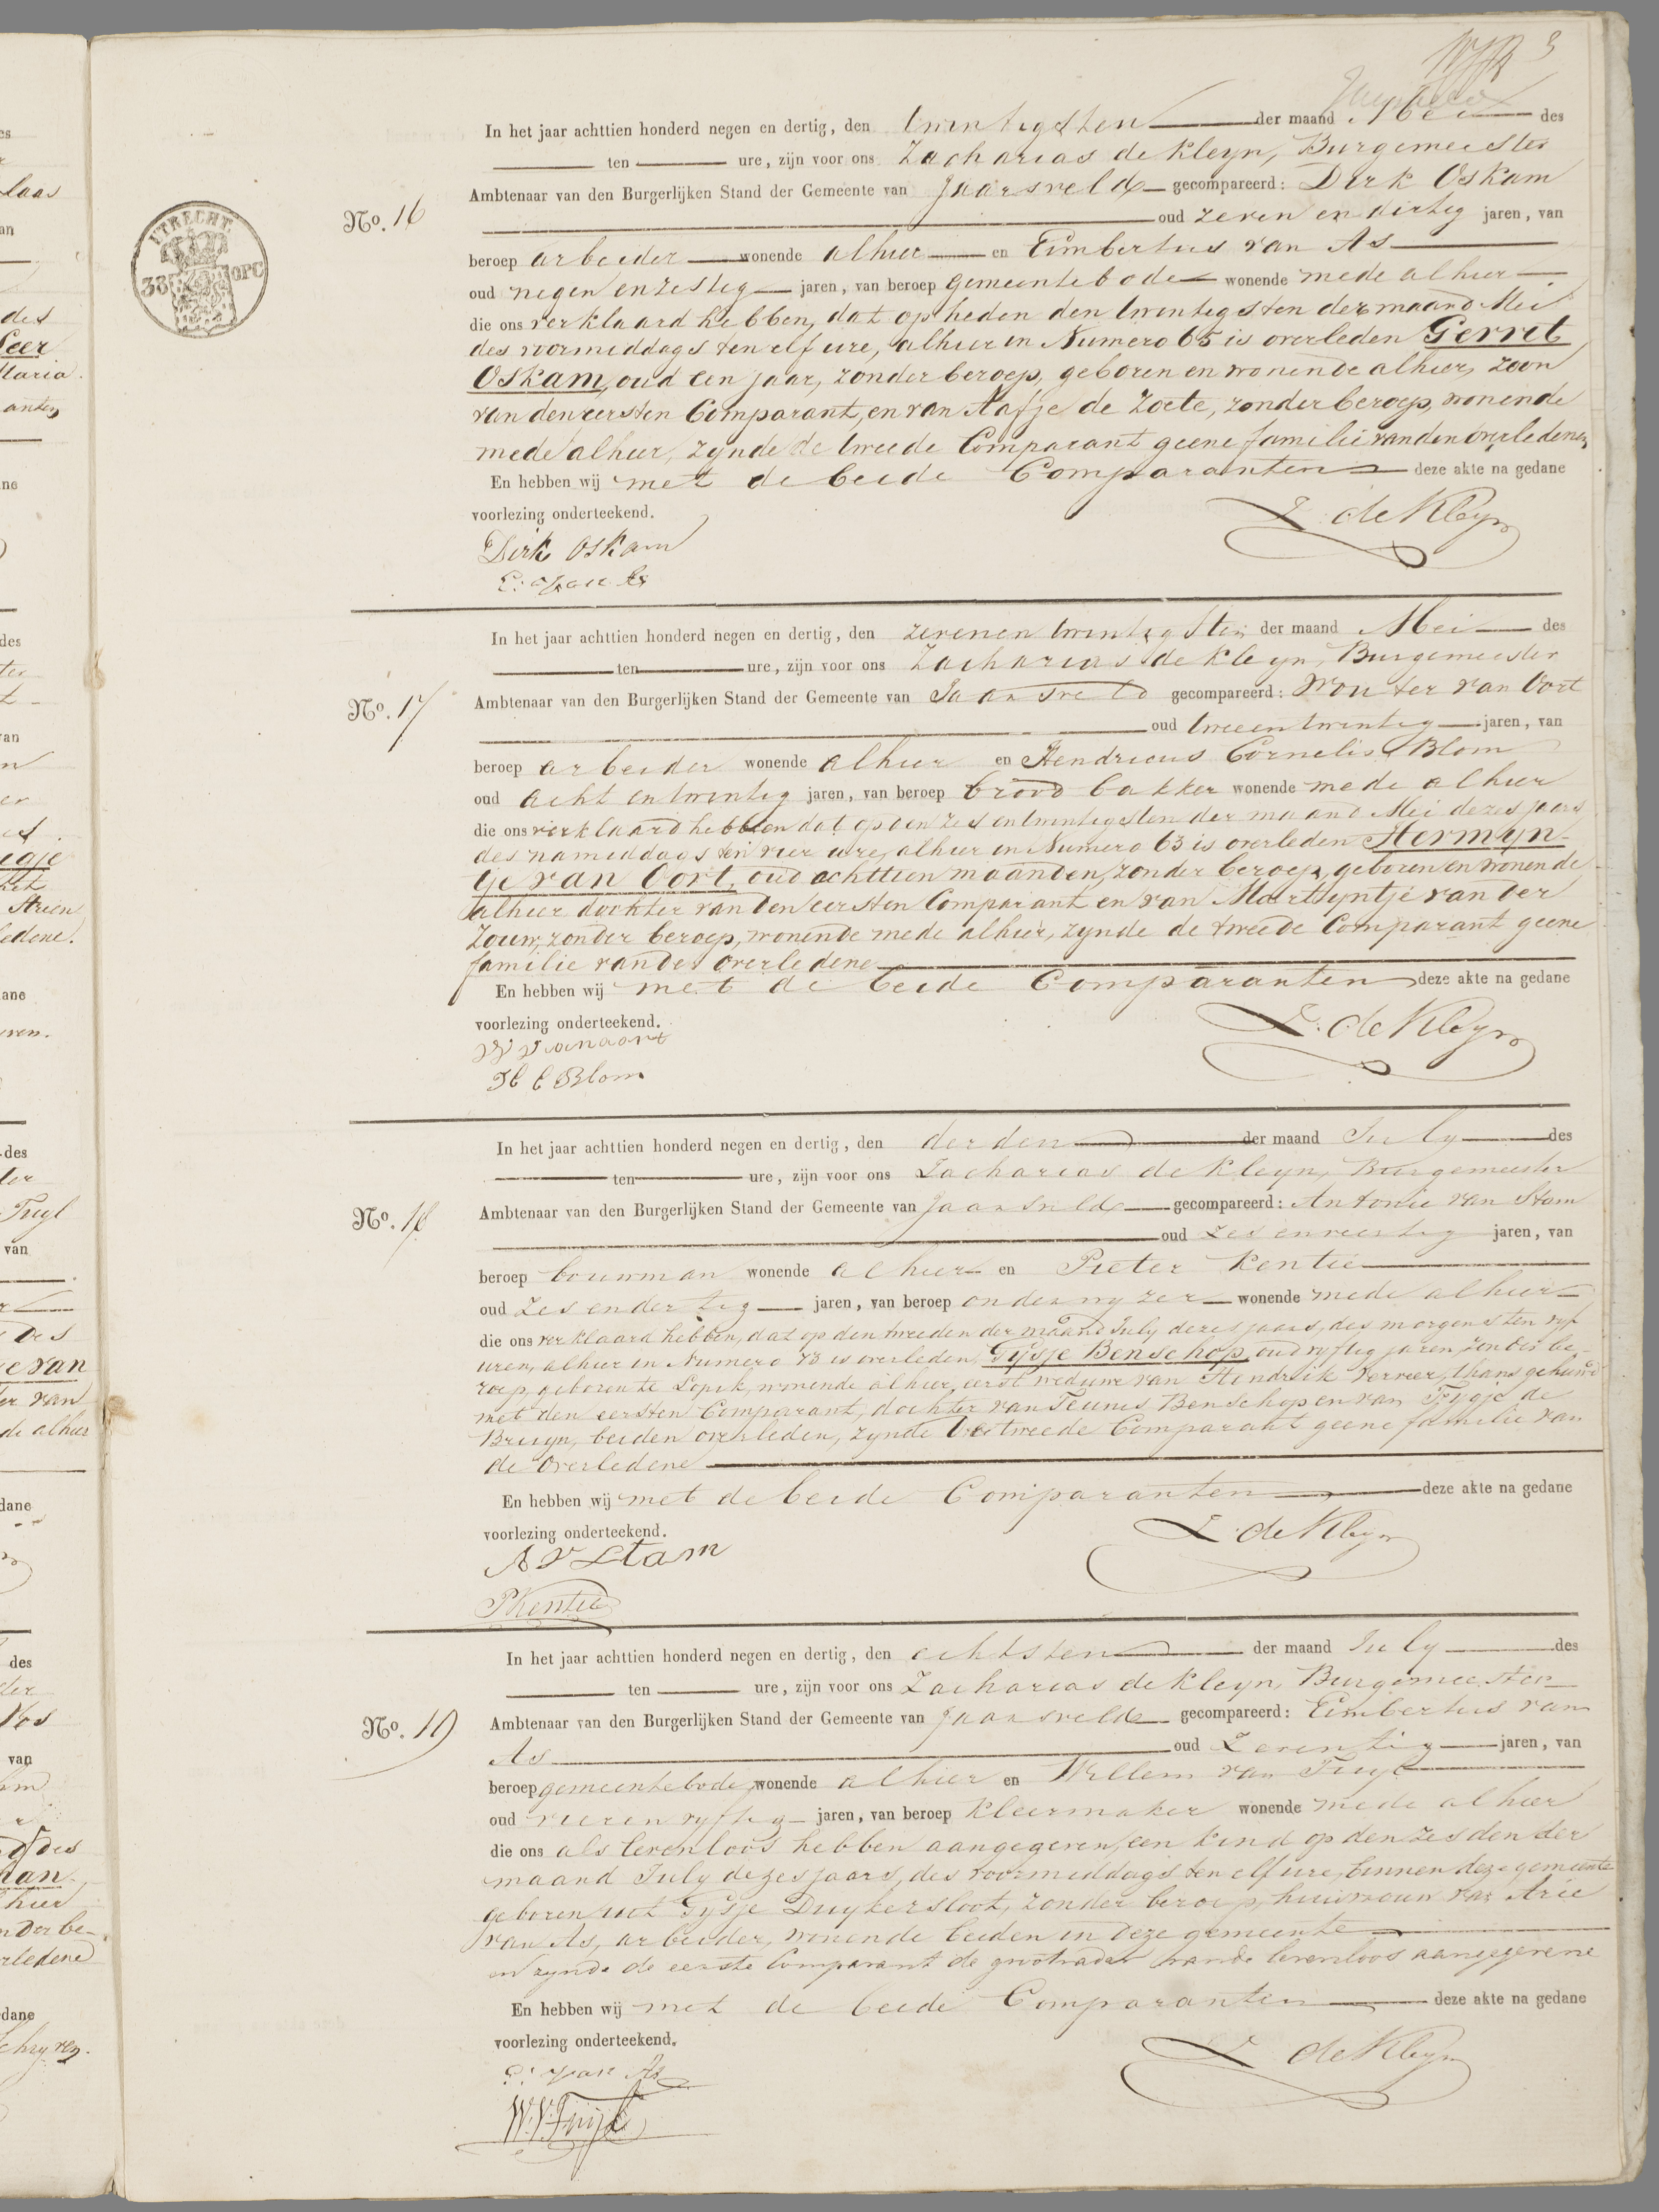 3
In het jaar achttien honderd negen en dertig, den twintigsten der maand Mei des
ten ure, zijn voor ons Zacharias de Kleyn, Burgemeester
Ambtenaar van den Burgerlijken Stand der Gemeente van Jaarsveld gecompareerd: Dirk Oskam
No. 16
oud zeven en dertig jaren, van
UTRECHT.
38 OPC
beroep arbeider wonende alhier en Eimbertus van As
oud negen en zestig jaren, van beroep gemeentebode wonende mede alhier
die ons verklaard hebben, dat op heden den twintigsten der maand Mei
des voormiddags ten elf ure, alhier in Numero 65 is overleden Gerrit
Oskam, oud een jaar, zonder beroep, geboren en wonende alhier, zoon
van den eersten Comparant, en van Aafje de Zoete, zonder beroep, wonende
mede alhier, zynde de tweede Comparant geene familie van den overledenen
En hebben wij met de beide Comparanten deze akte na gedane
voorlezing onderteekend.
Z. de Kleyn
Dirk Oskam
E. van As
In het jaar achttien honderd negen en dertig, den zevenentwintigsten der maand Mei des
ten ure, zijn voor ons Zacharias de Kleyn, Burgemeester
No. 17
Ambtenaar van den Burgerlijken Stand der Gemeente van Jaarsveld gecompareerd: Wouter van Oort
oud tweeentwintig jaren, van
beroep arbeider wonende alhier en Hendricus Cornelis Blom
oud acht en twintig jaren, van beroep brood bakker wonende mede alhier
die ons verklaard hebben dat op den zes en twintigsten der maand Mei dezes jaars
des namiddags ten vier ure, alhier in Numero 63 is overleden Hermyn-
tje van Oort, oud achttien maanden, zonder beroep, geboren en wonende
alhier dochter van den eersten Comparant en van Martyntje van der
Zouw, zonder beroep, wonende mede alhier, zynde de tweede Comparant geene
familie van de overledene
En hebben wij met de beide Comparanten deze akte na gedane
voorlezing onderteekend.
Z. de Kleyn
W van oort
H C Blom
In het jaar achttien honderd negen en dertig, den derden der maand July des
ten ure, zijn voor ons Zacharias de Kleyn, Burgemeester
No. 18
Ambtenaar van den Burgerlijken Stand der Gemeente van Jaarsveld gecompareerd: Antonie van Stam
oud zes en veertig jaren, van
beroep bouwman wonende alhier en Pieter Kentie
oud zes en dertig jaren, van beroep onderwyzer wonende mede alhier
die ons verklaard hebben, dat op den tweeden der maand July dezes jaars, des morgens ten vyf
uren, alhier in Numero 78 is overleden, Tysje Benschop, oud vyftig jaren, zonder be-
roep, geboren te Lopik, wonende alhier, eerst weduwe van Hendrik Verveer, thans gehuwd
met den eersten Comparant, dochter van Teunis Benschop en van Fygje de
Bruyn, beiden overleden, zynde de tweede Comparant geene familie van
de Overledene
En hebben wij met de beide Comparanten deze akte na gedane
voorlezing onderteekend.
Z. de Kleyn
A V Stam
P Kentie
In het jaar achttien honderd negen en dertig, den achtsten der maand July des
ten ure, zijn voor ons Zacharias de Kleyn, Burgemeester
No. 19
Ambtenaar van den Burgerlijken Stand der Gemeente van Jaarsveld gecompareerd: Eimbertus van
As oud Zeventig jaren, van
beroep gemeentebode, wonende alhier en Willem van Tuyl
oud vier en vyftig jaren, van beroep kleermaker wonende mede alhier
die ons als levenloos hebben aangegeven, een kind op den zesden der
maand July dezes jaars, des voormiddags ten elf ure, binnen deze gemeente
geboren uit Tysje Duykersloot, zonder beroep, huisvrouw van Arie
van As, arbeider, wonende beiden in deze gemeente
en zynde de eerste Comparant de grootvader van de levenloos aangegevene
En hebben wij met de beide Comparanten deze akte na gedane
voorlezing onderteekend.
Z. de Kleyn
E. van As
W. V. Tuijl